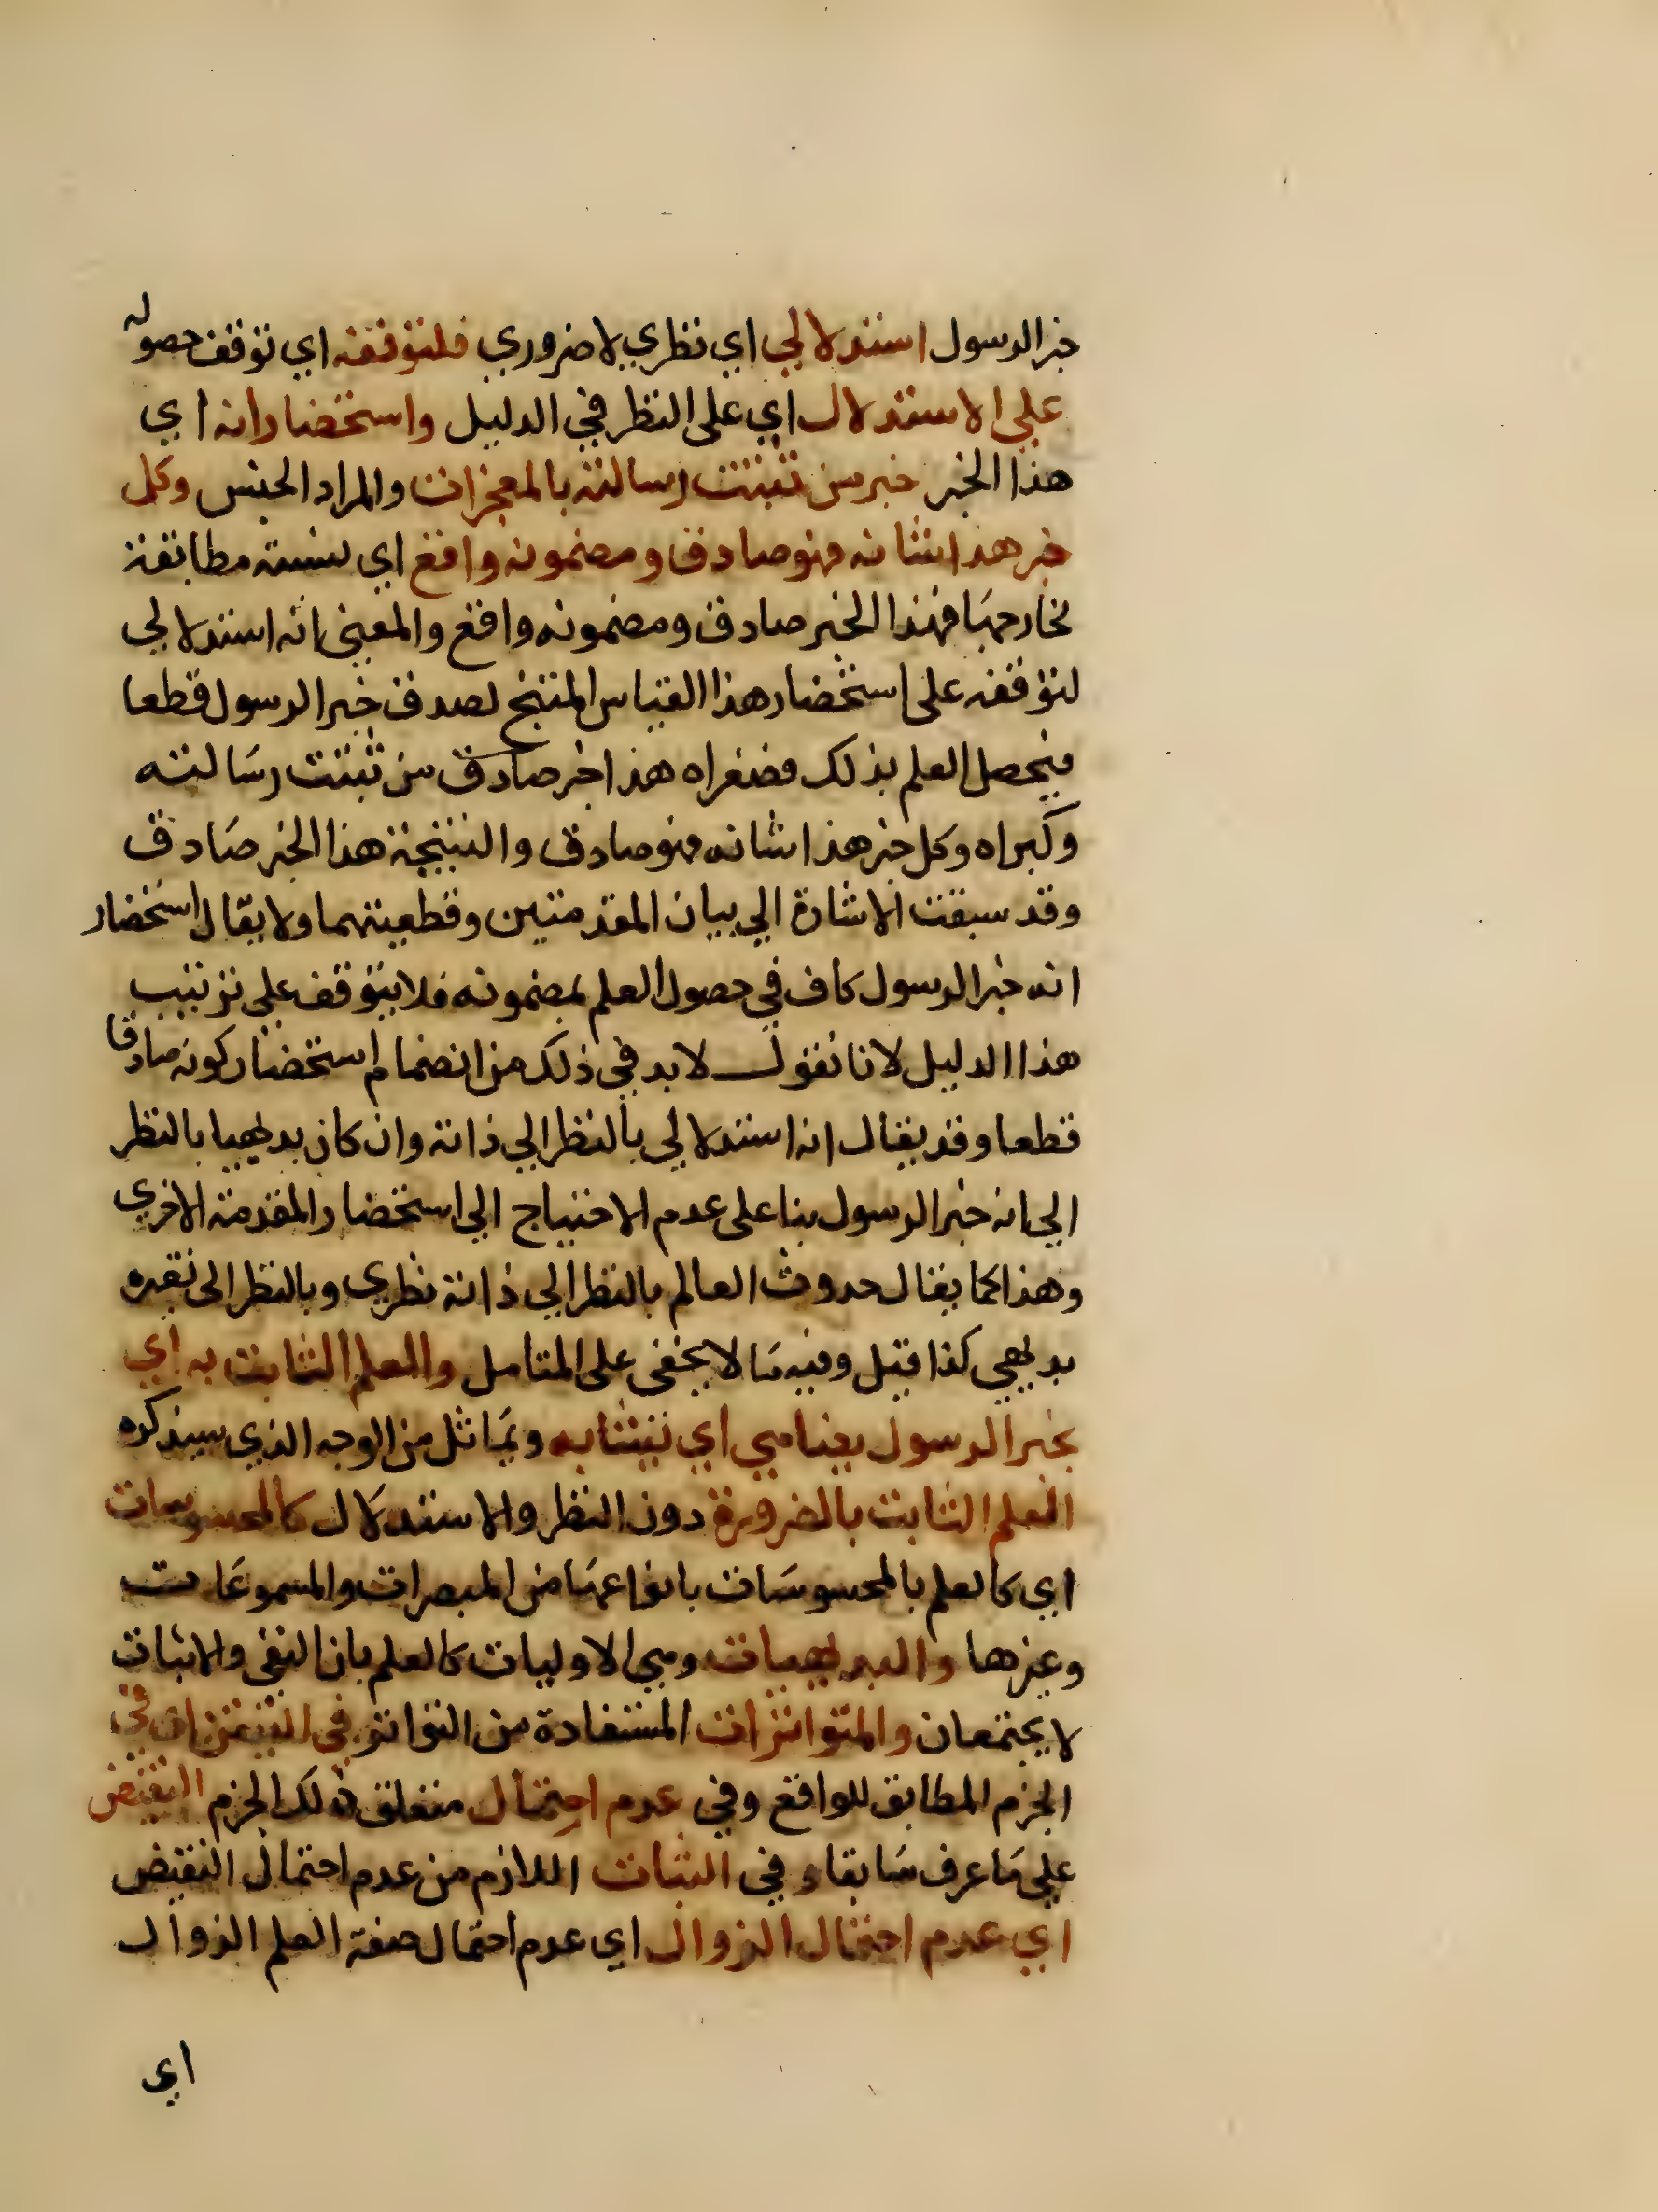 خبر الرسول استدلالي اي نظري لا ضروري فلتوقفه اي توقف حصوله
علي الاستدلال اي على النظر في الدليل واستحضار انه اي
هذا الخبر خبر من تثبت رسالته بالمعجزات والمراد الجنس وكل
خبر هذا شانه فهو صادق ومضمونه واقع اي نسبته مطابقة
لخارجها فهذا الخبر صادق ومضمونه واقع والمعنى انه استدلالي
لتوقفه على استحضار هذا القياس المنتج لصدق خبر الرسول قطعا
فيحصل العلم بذلك فصغراه هذا خبر صادق من ثبتت رسالته
وكبراه وكل خبر هذا شانه فهو صادق والنتيجة هذا الخبر صادق
وقد سبقت الاشارة الي بيان المقدمتين وقطعيتهما ولا يقال استحضار
انه خبر الرسول كاف في حصول العلم بمضمونه فلا يتوقف علي ترتيب
هذا الدليل لانا نقول لا بد في ذلك من انضمام استحضار كونه صادقا
قطعا وقد يقال انه استدلالي بالنظر الي ذاته وان كان بديهيا بالنظر
الي انه خبر الرسول بنا على عدم الاحتياج الي استحضار المقدمة الاخري
وهذا كما يقال حدوث العالم بالنظر الي ذاته نظري وبالنظر الى تغيره
بديهي كذا قيل وفيه ما لا يخفى على المتامل والعلم الثابت به اي
بخبر الرسول يضاهي اي يشابه ويماثل من الوجه الذي سيذكره
العلم الثابت بالضرورة دون النظر والاستدلال كالمحسوسات
اي كالعلم بالمحسوسات بانواعها من المبصرات والمسموعات
وغيرها والبديهيات وهي الاوليات كالعلم بان النفي والاثبات
لا يجتمعان والمتواترات المستفادة من التواتر في التيقن اي في
الجزم المطابق للواقع وفي عدم احتمال متعلق ذلك الجزم النقيض
علي ما عرف سابقا وفي الثبات اللازم من عدم احتمال النقيض
اي عدم احتمال الزوال اي عدم احتمال صفة العلم الزوال
اي